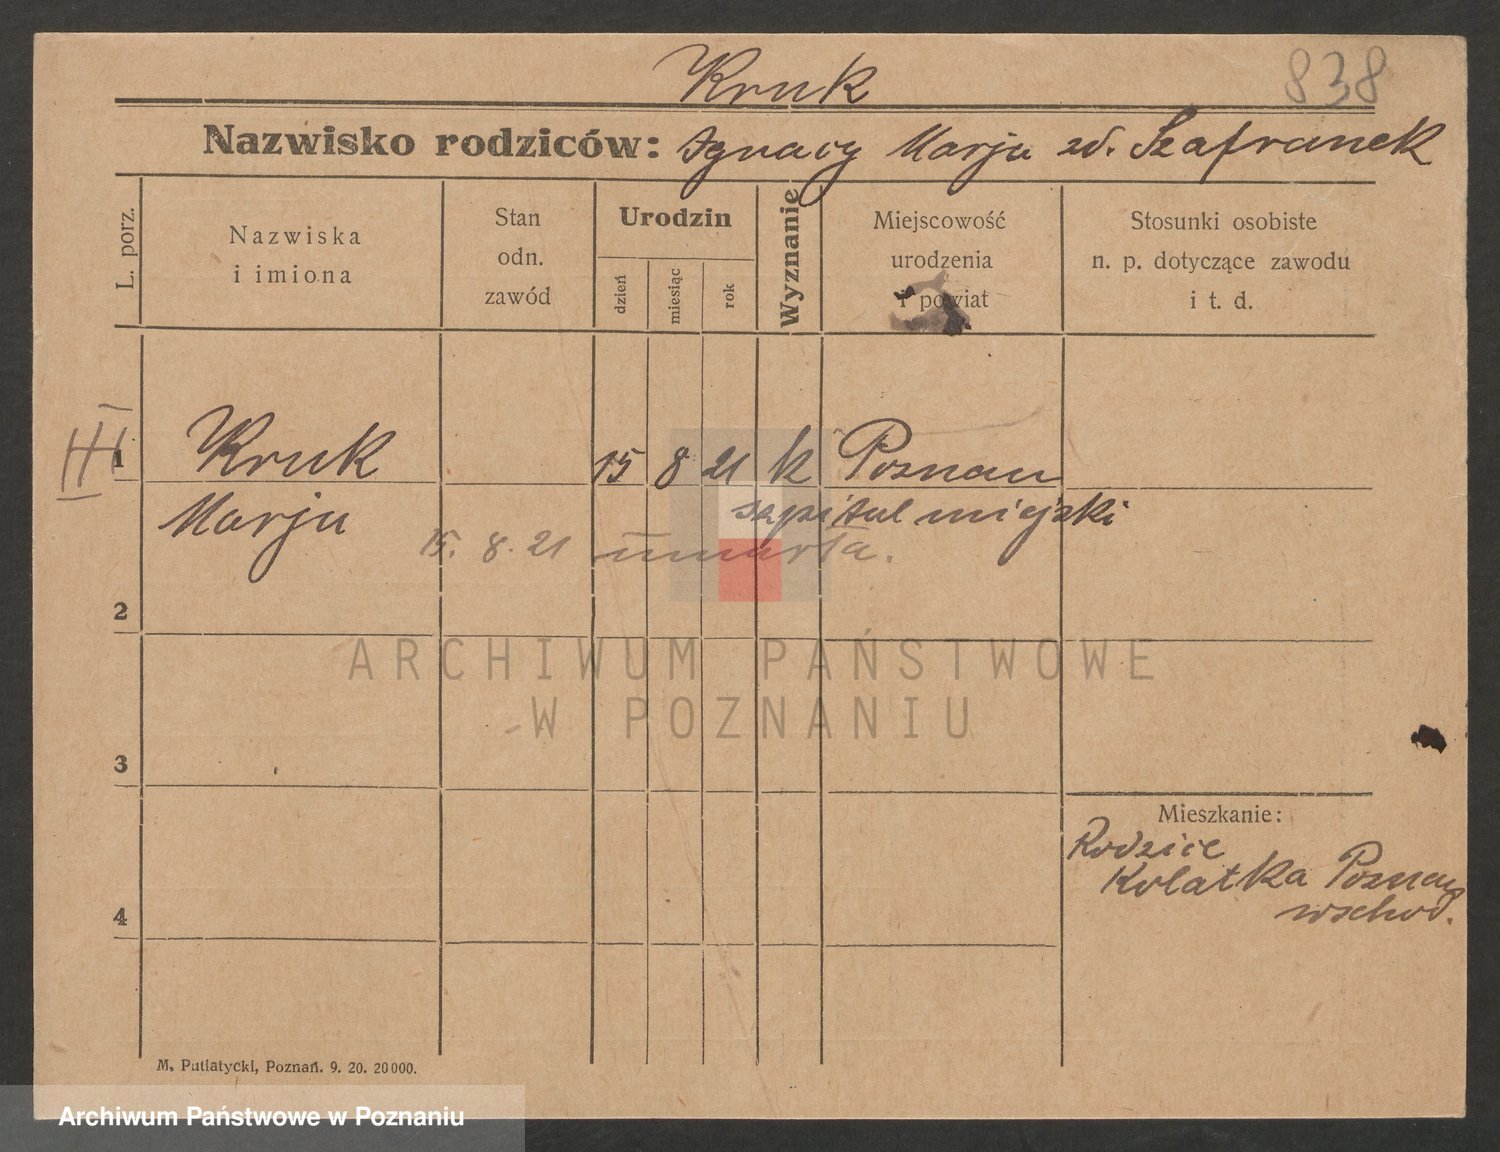 Kruk
838
Nazwisko rodziców: Ignacy Marja zd. Szafranek
L. porz.
Nazwiska
i imiona
Stan
odn.
zawód
Urodzin
dzień
miesiąc
rok
Wyznanie
Miejscowość
urodzenia
i powiat
Stosunki osobiste
n. p. dotyczące zawodu
i t. d.
III
1 Kruk 15 8 21 k Poznan
Marja szpital miejski
15. 8. 21 umarła.
2
3
4
ARCHIWUM PAŃSTWOWE
W POZNANIU
Mieszkanie:
Rodzice
Kolatka Poznań
wschod.
M. Putiatycki, Poznań. 9. 20. 20000.
Archiwum Państwowe w Poznaniu